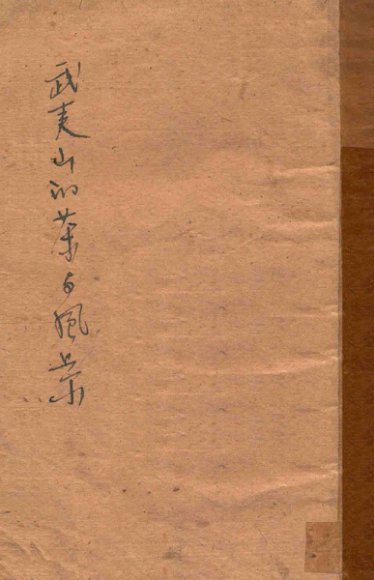 武夷山的茶与風景